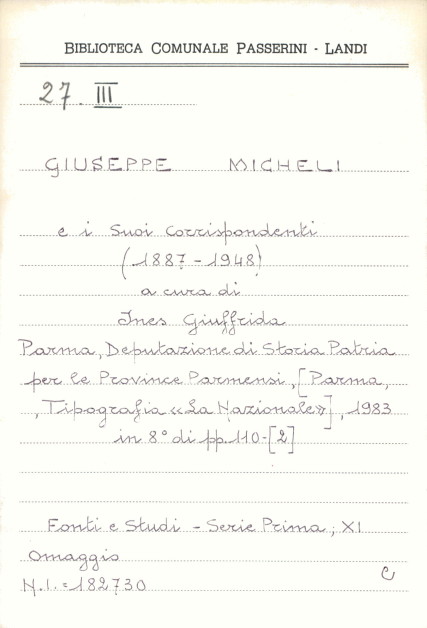 BIBLIOTECA COMUNALE PASSERINI - LANDI
27. III
GIUSEPPE MICHELI
e i Suoi Corrispondenti
(1887 - 1948)
a cura di
Ines Giuffrida
Parma, Deputazione di Storia Patria
per le Province Parmensi, [Parma,
, Tipografia «La Nazionale»], 1983
in 8° di pp. 110-[2]
Fonti e Studi - Serie Prima; XI
Omaggio
N.I. = 182730
C